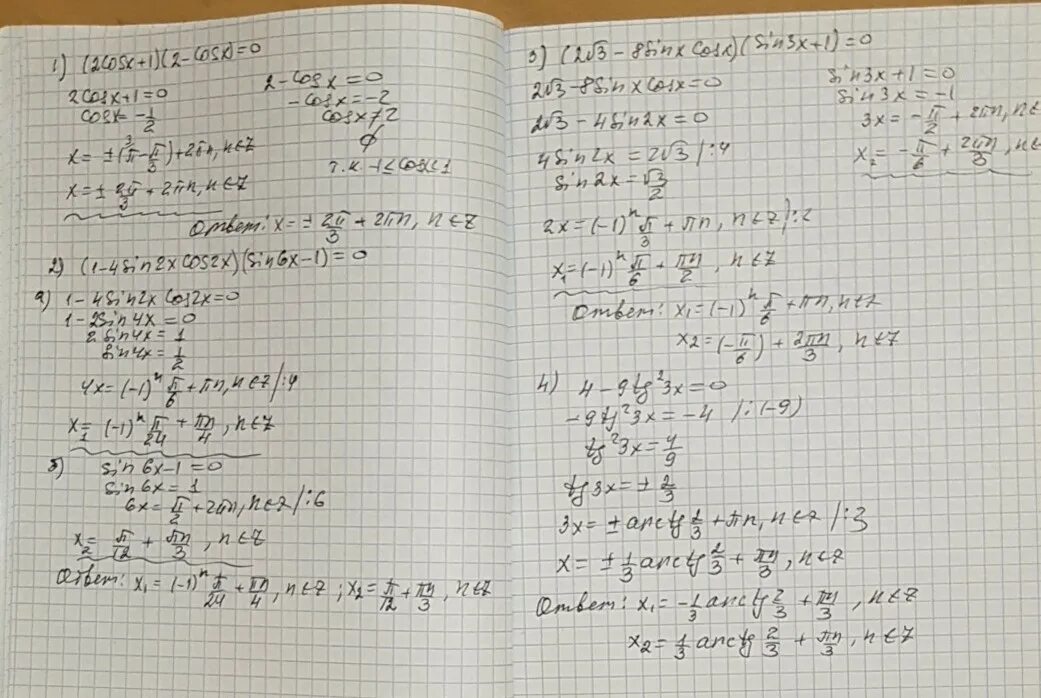 1) (2cosx+1)(2-cosx)=0
2cosx+1=0
cosx=-1/2
x=±(π-π/3)+2πn, n∈Z
x=±2π/3+2πn, n∈Z
2-cosx=0
-cosx=-2
cosx≠2
∅
т.к. -1≤cosx≤1
Ответ: x=±2π/3+2πn, n∈Z
2) (1-4sin2xcos2x)(sin6x-1)=0
а) 1-4sin2xcos2x=0
1-2sin4x=0
2sin4x=1
sin4x=1/2
4x=(-1)ⁿπ/6+πn, n∈Z/:4
x₁=(-1)ⁿπ/24+πn/4, n∈Z
б) sin6x-1=0
sin6x=1
6x=π/2+2πn, n∈Z/:6
x₂=π/12+πn/3, n∈Z
Ответ: x₁=(-1)ⁿπ/24+πn/4, n∈Z; x₂=π/12+πn/3, n∈Z
3) (2√3-8sinxcosx)(sin3x+1)=0
2√3-8sinxcosx=0
2√3-4sin2x=0
4sin2x=2√3/:4
sin2x=√3/2
2x=(-1)ⁿπ/3+πn, n∈Z/:2
x₁=(-1)ⁿπ/6+πn/2, n∈Z
sin3x+1=0
sin3x=-1
3x=-π/2+2πn, n∈
x₂=-π/6+2πn/3, n∈
Ответ: x₁=(-1)ⁿπ/6+πn, n∈Z
x₂=(-π/6)+2πn/3, n∈Z
4) 4-9tg²3x=0
-9tg²3x=-4 /:(-9)
tg²3x=4/9
tg3x=±2/3
3x=±arctg2/3+πn, n∈Z/:3
x=±1/3arctg2/3+πn/3, n∈Z
Ответ: x₁=-1/3arctg2/3+πn/3, n∈Z
x₂=1/3arctg2/3+πn/3, n∈Z